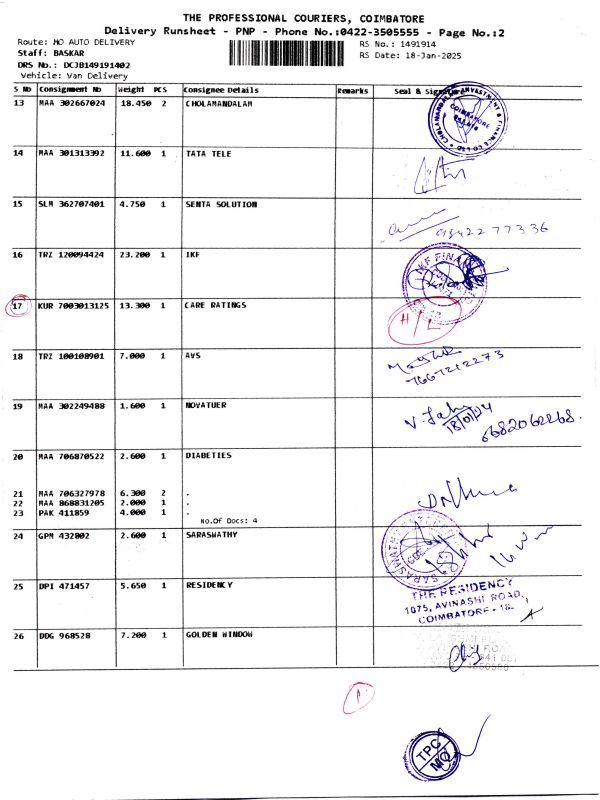 THE PROFESSIONAL COURIERS, COIMBATORE
Delivery Runsheet - PNP - Phone No.:0422-3505555 - Page No.:2
Route: MO AUTO DELIVERY
RS No.: 1491914
Staff: BASKAR
RS Date: 18-Jan-2025
DRS No.: DCJB149191402
Vehicle: Van Delivery
S No Consignment No Weight PCS Consignee Details Remarks Seal &
13 MAA 302667024 18.450 2 CHOLAMANDALAM
COIMBATORE
14 MAA 301313392 11.600 1 TATA TELE
15 SLM 362707401 4.750 1 SENTA SOLUTION
9842277336
16 TRZ 120094424 23.200 1 IKF
IKF FINANCE
17 KUR 7003013125 13.300 1 CARE RATINGS
H/L
18 TRZ 100108901 7.000 1 AVS
7667212273
19 MAA 302249488 1.600 1 NOVATUER
18/01/24
20 MAA 706870522 2.600 1 DIABETIES
21 MAA 706327978 6.300 2 .
22 MAA 868831205 2.000 1 .
23 PAK 411859 4.000 1 .
No.Of Docs: 4
24 GPM 432802 2.600 1 SARASWATHY
25 DPI 471457 5.650 1 RESIDENCY
THE RESIDENCY
1075, AVINASHI ROAD,
COIMBATORE - 18.
26 DDG 968528 7.200 1 GOLDEN WINDOW
TPC
MO